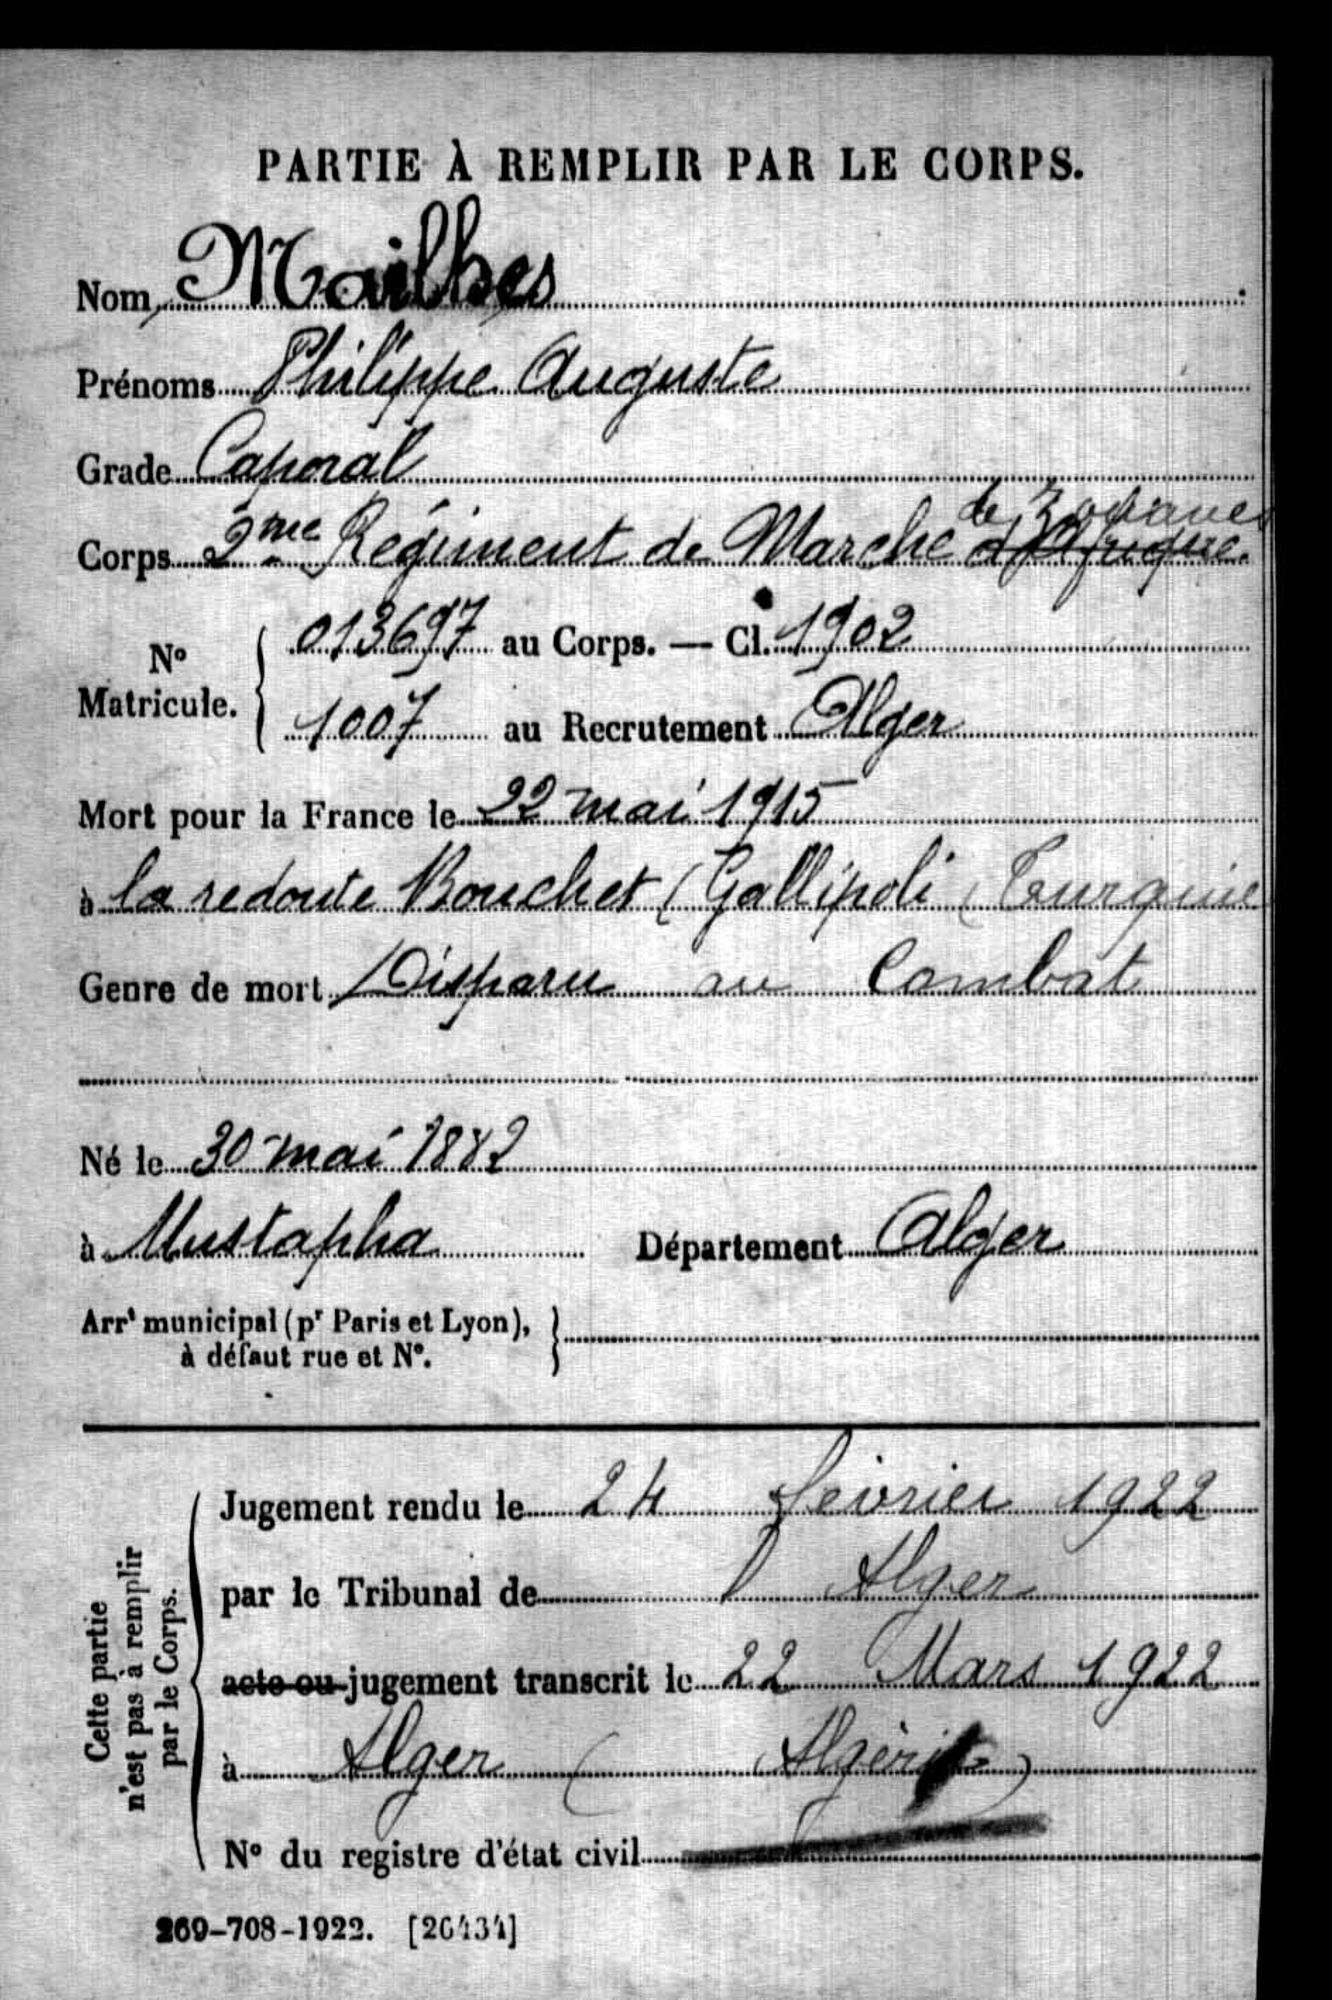 PARTIE À REMPLIR PAR LE CORPS.
Nom Mailhes
Prénoms Philippe Auguste
Grade Caporal
de Zouaves
Corps 2me Régiment de Marche d'Afrique.
N° Matricule. { 013697 au Corps. — Cl. 1902
1007 au Recrutement Alger
Mort pour la France le 22 mai 1915
à la redoute Bouchet (Gallipoli (Turquie
Genre de mort Disparu au Combat
Né le 30 mai 1882
à Mustapha Département Alger
Arrt municipal (pr Paris et Lyon), }
à défaut rue et N°.
Cette partie
n'est pas à remplir
par le Corps.
Jugement rendu le 24 février 1922
par le Tribunal de Alger
acte ou jugement transcrit le 22 Mars 1922
à Alger ( Algérie )
N° du registre d'état civil
269-708-1922. [26434]